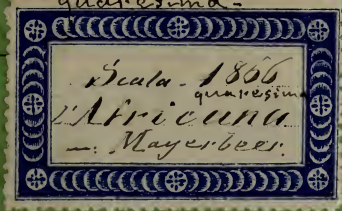 quaresima -
Scala - 1866
quaresima
L'Africana
- Mayerbeer.